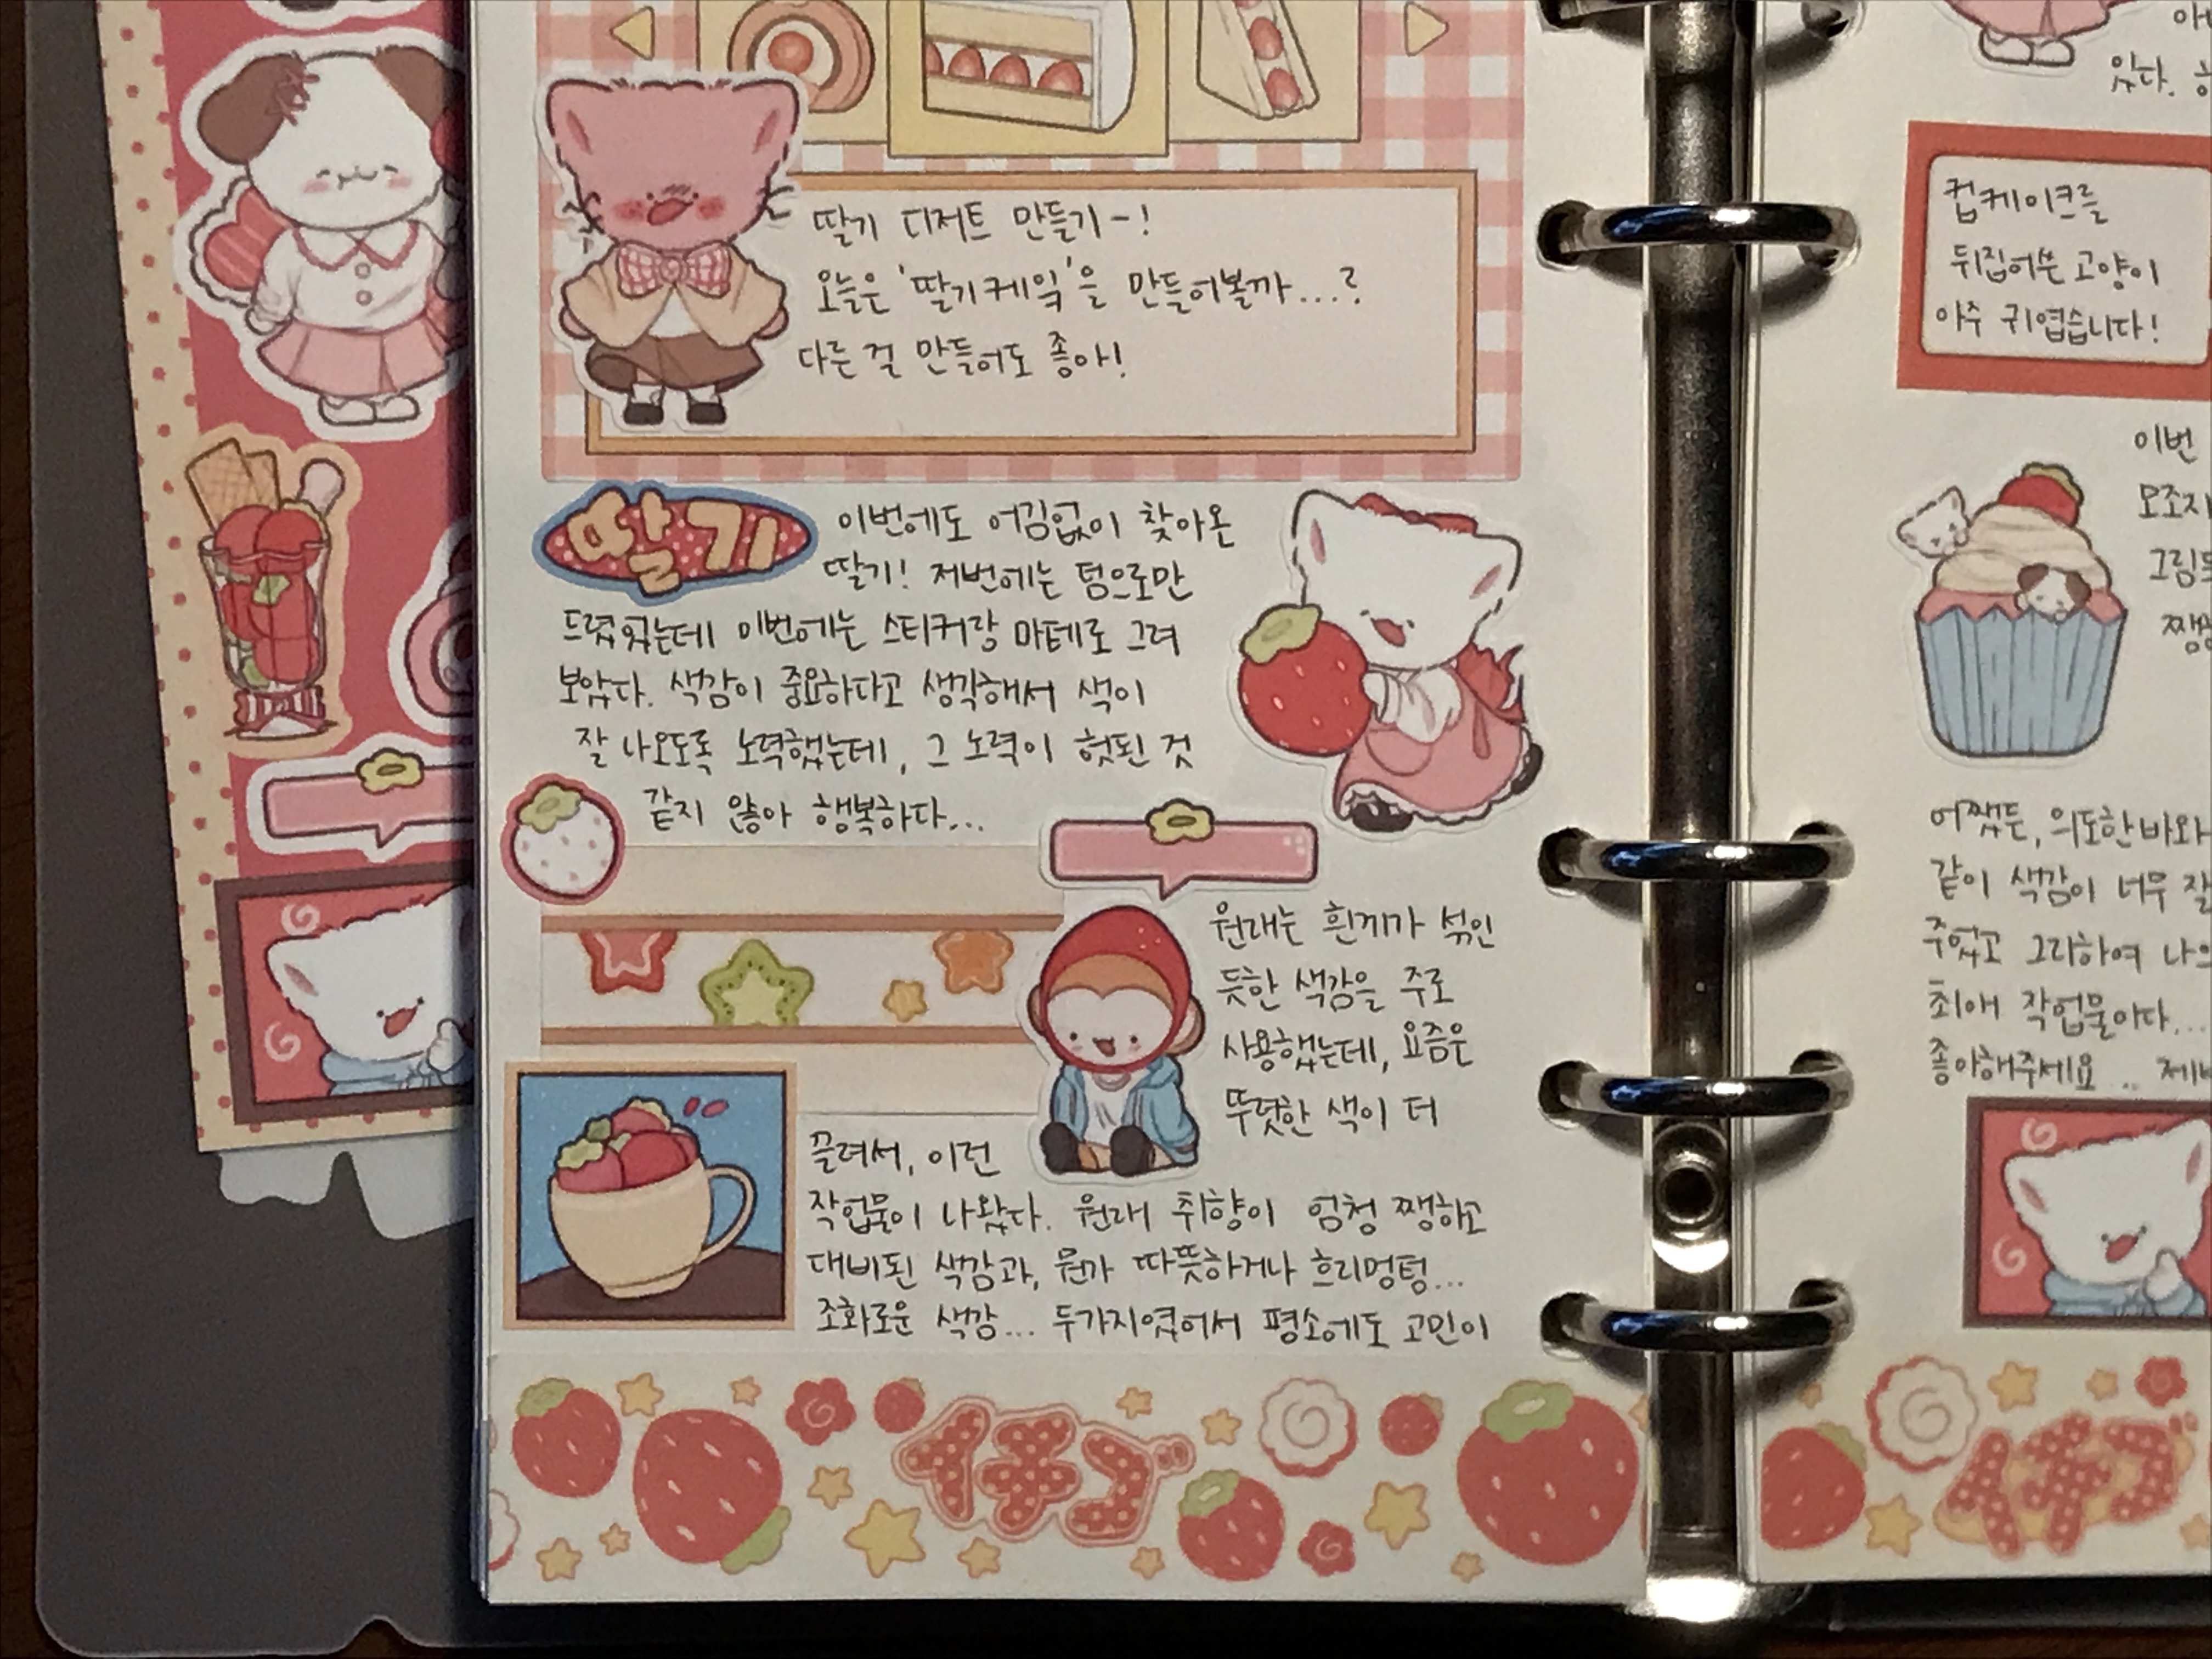 딸기 디저트 만들기-!
오늘은 '딸기케잌'을 만들어볼까...?
다른 걸 만들어도 좋아!
딸기
이번에도 어김없이 찾아온
딸기! 저번에는 덤으로만
드렸었는데 이번에는 스티커랑 마테로 그려
보았다. 색감이 중요하다고 생각해서 색이
잘 나오도록 노력했는데, 그 노력이 헛된 것
같지 않아 행복하다...
원래는 흰끼가 섞인
듯한 색감을 주로
사용했는데, 요즘은
뚜렷한 색이 더
끌려서, 이런
작업물이 나왔다. 원래 취향이 엄청 쨍하고
대비된 색감과, 뭔가 따뜻하거나 흐리멍텅...
조화로운 색감... 두가지였어서 평소에도 고민이
イチゴ
있다.
컵케이크를
뒤집어쓴 고양이
아주 귀엽습니다!
이번
모조지
그림
어쨌든, 의도한바와
같이 색감이 너무 잘
주었고 그리하여 나의
최애 작업물이다...
좋아해주세요..
イチゴ